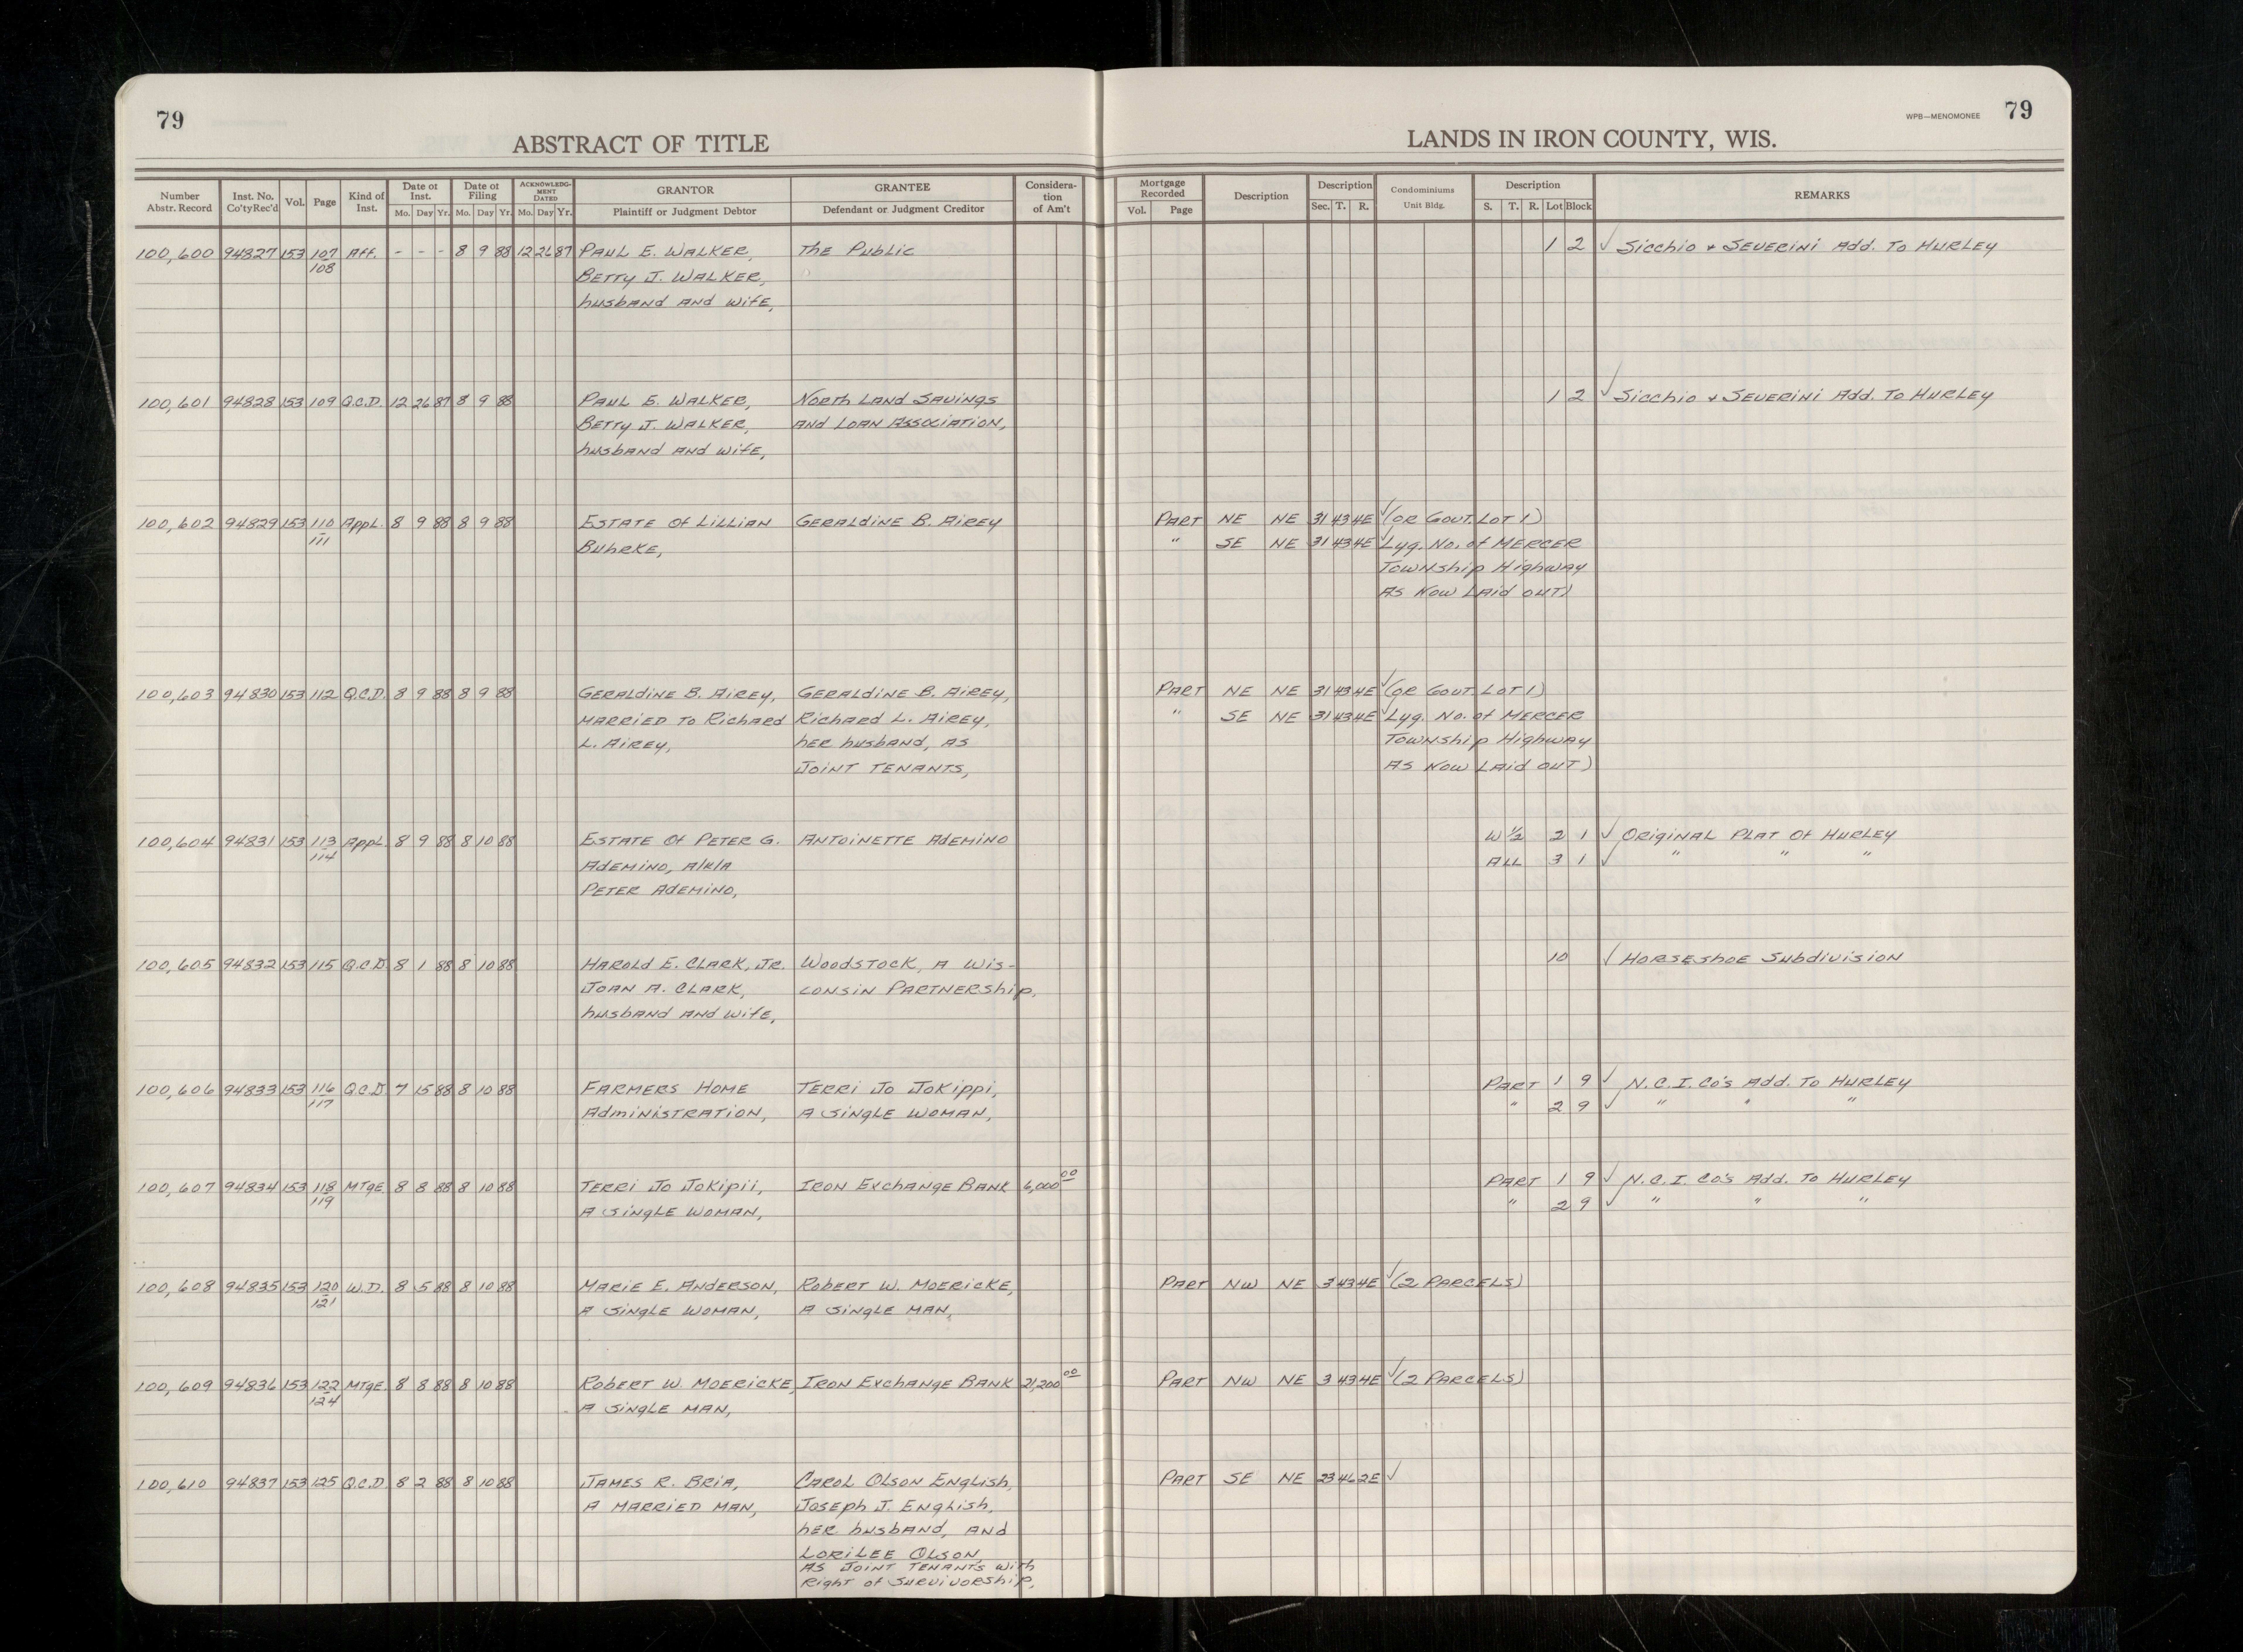 79
ABSTRACT OF TITLE
LANDS IN IRON COUNTY, WIS.
WPB—MENOMONEE
79
Number Abstr. Record | Inst. No. Co'ty Rec'd | Vol. | Page | Kind of Inst. | Date of Inst. Mo. Day Yr. | Date of Filing Mo. Day Yr. | ACKNOWLEDGMENT DATED Mo. Day Yr. | GRANTOR Plaintiff or Judgment Debtor | GRANTEE Defendant or Judgment Creditor | Consideration of Am't | Mortgage Recorded Vol. Page | Description | Description Sec. T. R. | Condominiums Unit Bldg. | Description S. T. R. Lot Block | REMARKS
100,600 94827 153 107 Aff. - - - 8 9 88 12 26 87 PAUL E. WALKER, The Public 1 2 ✓ Sicchio & SEVERINI Add. To HURLEY
108 BETTY J. WALKER,
husband AND wife,
100,601 94828 153 109 Q.C.D. 12 26 87 8 9 88 PAUL E. WALKER, North Land Savings 1 2 ✓ Sicchio & SEVERINI Add. To HURLEY
BETTY J. WALKER, And LOAN ASSOCIATION,
husband AND wife,
100,602 94829 153 110 AppL. 8 9 88 8 9 88 ESTATE Of LILLIAN GERALDINE B. AIREY PART NE NE 31 43 4E ✓ (OR GOVT. LOT 1)
111 BUHRKE, " SE NE 31 43 4E ✓ Lyg. No. of MERCER
TOWNShip Highway
AS NOW LAid OUT)
100,603 94830 153 112 Q.C.D. 8 9 88 8 9 88 GERALDINE B. AIREY, GERALDINE B. AIREY, PART NE NE 31 43 4E ✓ (OR GOVT. LOT 1)
MARRIED TO Richard Richard L. AIREY, " SE NE 31 43 4E ✓ Lyg. No. of MERCER
L. AIREY, hER husband, AS TOWNShip Highway
JOINT TENANTS, AS NOW LAid OUT)
100,604 94831 153 113 AppL. 8 9 88 8 10 88 ESTATE Of PETER G. ANTOINETTE ADEMINO W ½ 2 1 ✓ ORIGINAL PLAT Of HURLEY
114 ADEMINO, A/K/A ALL 3 1 ✓ " " "
PETER ADEMINO,
100,605 94832 153 115 Q.C.D. 8 1 88 8 10 88 HAROLD E. CLARK, JR. WOODSTOCK, A WIS- 10 ✓ HORSESHOE Subdivision
JOAN A. CLARK, CONSIN PARTNERShip,
husband AND wife,
100,606 94833 153 116 Q.C.D. 7 15 88 8 10 88 FARMERS HOME TERRI JO JOKIPPI, PART 1 9 ✓ N.C.I. CO'S Add. To HURLEY
117 AdmINISTRATION, A SINGLE WOMAN, " 2 9 ✓ " " "
100,607 94834 153 118 MTgE. 8 8 88 8 10 88 TERRI JO JOKIPII, IRON EXChANGE BANK 6,000 00 PART 1 9 ✓ N.C.I. CO'S Add. To HURLEY
119 A SINGLE WOMAN, " 2 9 ✓ " " "
100,608 94835 153 120 W.D. 8 5 88 8 10 88 MARIE E. ANDERSON, ROBERT W. MOERICKE, PART NW NE 3 43 4E ✓ (2 PARCELS)
121 A SINGLE WOMAN, A SINGLE MAN,
100,609 94836 153 122 MTgE. 8 8 88 8 10 88 ROBERT W. MOERICKE, IRON EXChANGE BANK 21,200 00 PART NW NE 3 43 4E ✓ (2 PARCELS)
124 A SINGLE MAN,
100,610 94837 153 125 Q.C.D. 8 2 88 8 10 88 JAMES R. BRIA, CAROL OLSON ENGLISh, PART SE NE 23 46 2E ✓
A MARRIED MAN, JOSEPh J. ENGLISh,
hER husband, AND
LORILEE OLSON,
AS JOINT TENANT'S WITh
RIGHT Of SURVIVORShip,